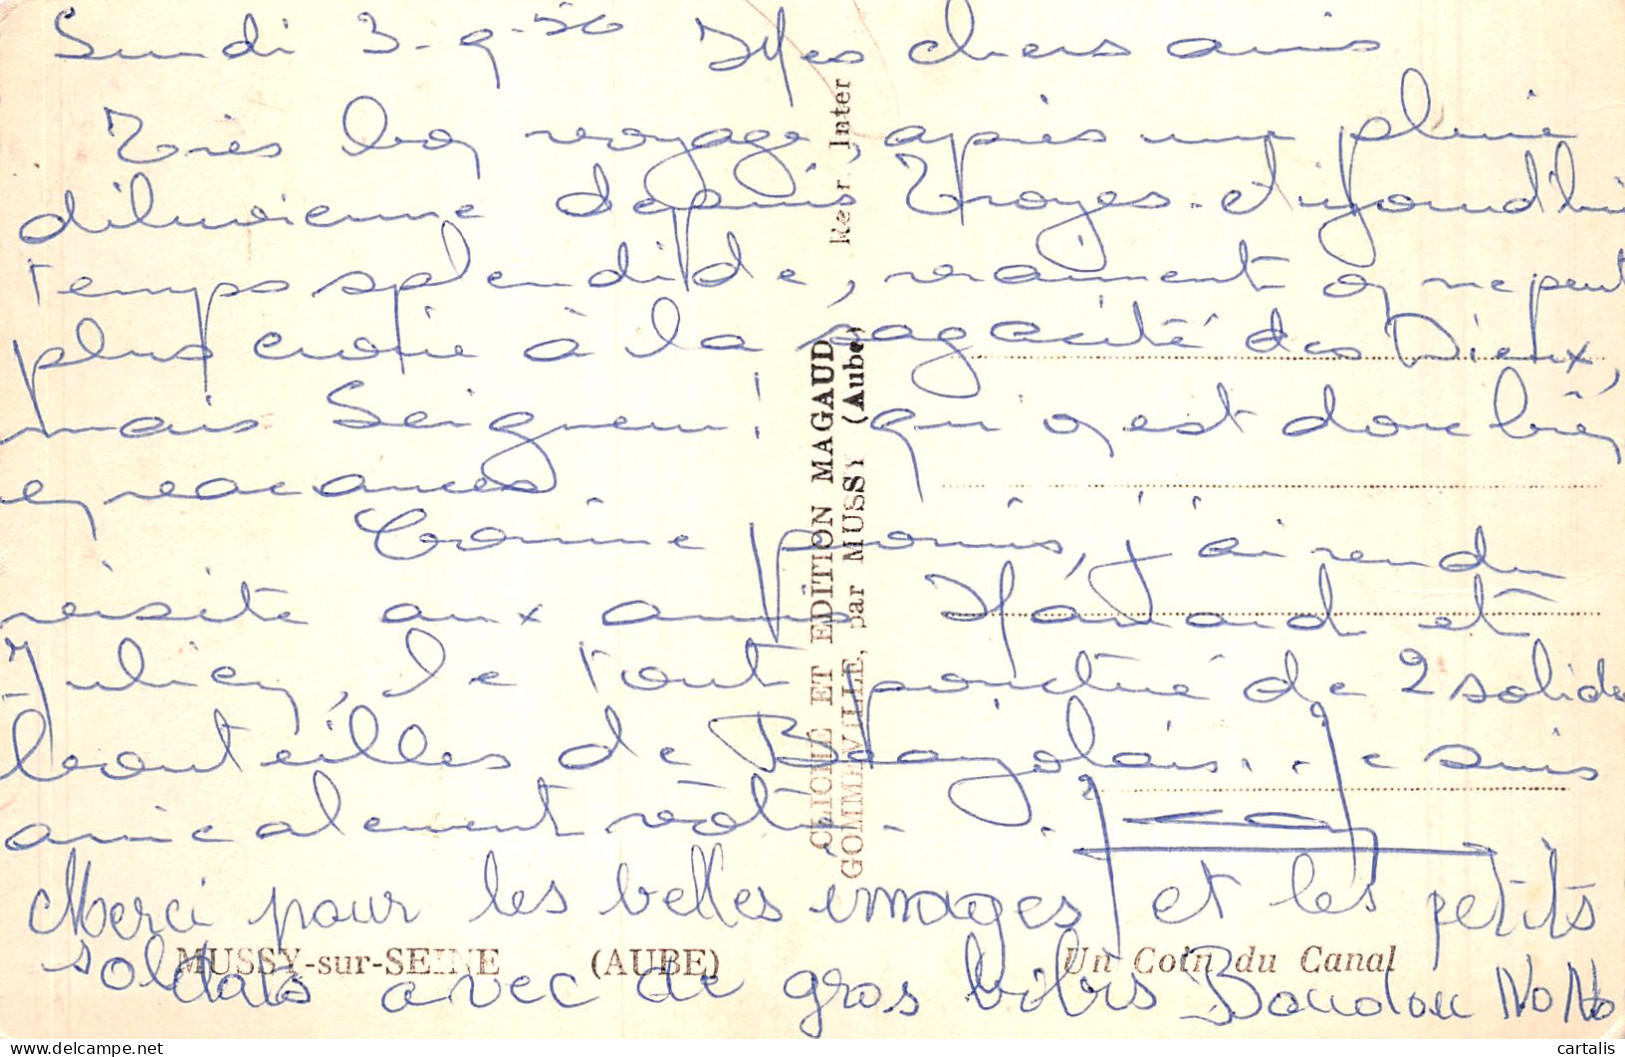 Lundi 3-9-56 Mes chers amis
Très bon voyage, après une pluie
diluvienne depuis Troyes. Aujourd'hui
temps splendide, vraiment on ne peut
plus croire à la sagacité des Dieux,
mais Seigneur! qu'on est donc bien
en vacances.
Comme promis, j'ai rendu
visite aux amis et
Julien, le tout ponctué de 2 solides
bouteilles de Beaujolais... Je suis
amicalement vôtre.
Merci pour les belles images et les petits
soldats avec de gros bibis Boudou NoNo
MUSSY-sur-SEINE (AUBE) Un Coin du Canal
CLICHÉ ET EDITION MAGAUD
GOMMEVILLE, par MUSSY (Aube) Rer. Inter
cartalis